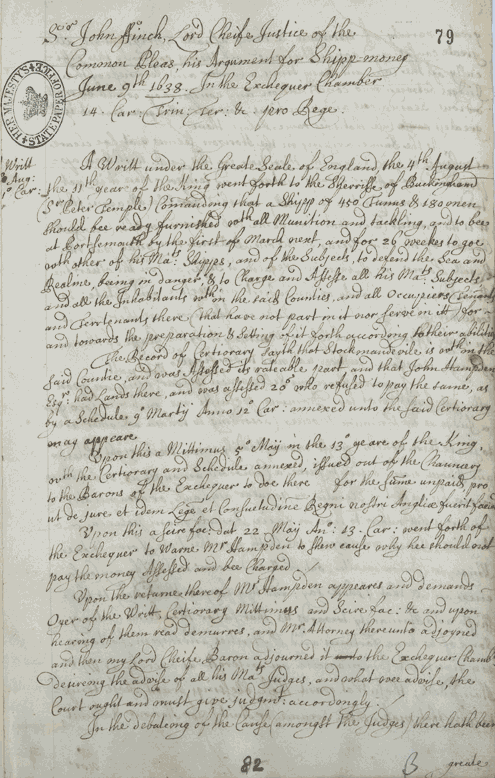 Sr John Ffinch, Lord Cheife Justice of the
79
Common Pleas his Argument for Shipp-money
June 9th 1638. In the Exchequer Chamber.
14. Car: Trin: Ter: &c pro Rege.
HER MAJESTY'S STATE PAPER OFFICE
Writt
Aug:
Car:
A Writt under the Greate Seale of England the 4th August
the 11th yeare of the King went forth to the Sherriffe of Buckingham
(Sr Peter Temple) Comanding that a Shipp of 450 Tunns & 180 men
should bee ready furnished wth all Munition and tackling, and to bee
at Portsemouth by the first of March next, and for 26 weekes to goe
wth other of his Mats Shipps, and of the Subjects, to defend the Sea and
Realme, being in danger, & to Charge and Assesse all his Mats Subjects
and all the Inhabitants wthin the said Counties, and all Occupiers, Tenants
and Terrtenants there (that have not part in it nor serve in it) for
and towards the preparation & Setting of it forth according to their ability
The Record of Certiorary Sayth that Stockmandevile is wthin the
said Countie, and was Assessed its rateable part, and that John Hampden
Esqr had Lands there, and was assessed 20s who refused to pay the same, as
by a Schedule 9o Martij Anno 12o Car: annexed unto the said Certiorary
may appeare.
Upon this a Mittimus 5o May in the 13th yeare of the King,
with the Certiorary and Schedule annexed, issued out of the Chauncery
to the Barons of the Exchequer to doe there for the same unpaid, pro
ut de jure et idem Lege et Consuetudine Regni nostri Angliæ fuerit faciend
Upon this a Scire fac: dat 22 May Ano: 13. Car: went forth of
the Exchequer to Warne Mr Hampden to shew cause why hee should not
pay the money Assessed and bee Charged.
Upon the returne thereof Mr Hampden appeares and demands
Oyer of the Writt, Certiorary Mittimuss and Scire fac: &c and upon
hearing of them read demurres, and Mr Attorney thereunto adjoyned
and then my Lord Cheife Baron adjourned it into the Exchequer Chamb
desireing the advise of all his Mats Judges, and what wee advise, the
Court ought and must give judgmt: accordingly.
In the debateing of the Cause amongst the Judges, there hath been
82
B
greate